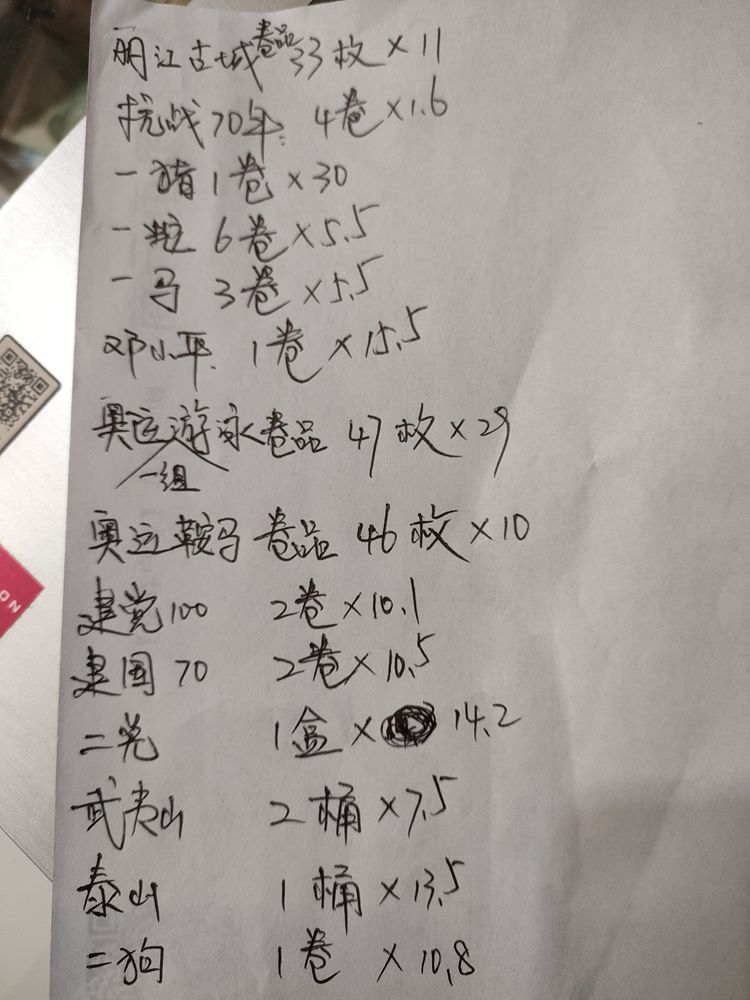 丽江古城卷品33枚×11
抗战70年: 4卷×1.6
一猪1卷×30
一粒 6卷×5.5
一马 3卷×5.5
邓小平. 1卷×15.5
奥运游泳卷品 47枚×29
一组
奥运鞍马 卷品 46枚×10
建党100 2卷×10.1
建国70 2卷×10.5
二羌 1盒× 14.2
武夷山 2桶×7.5
泰山 1桶×13.5
二狗 1卷×10.8
NO